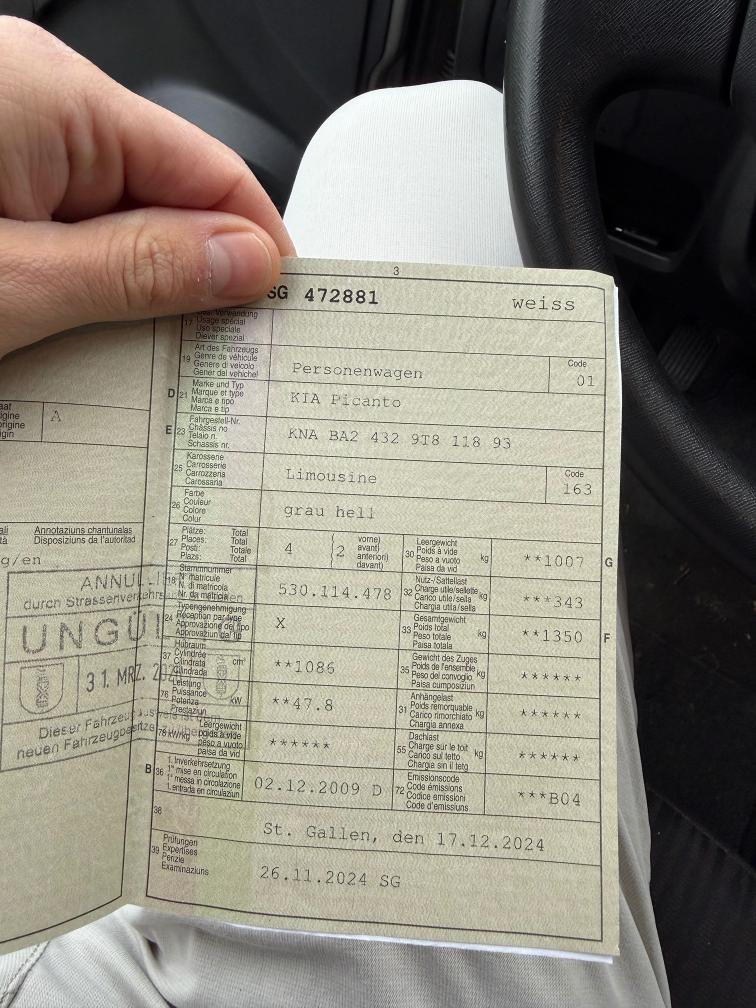 3
SG 472881 weiss
17
Usage spécial
Uso speciale
Diever spezial
19
Art des Fahrzeugs
Genre de véhicule
Genere di veicolo
Gener dal vehichel
Personenwagen
Code
01
D 21
Marke und Typ
Marque et type
Marca e tipo
Marca e tip
KIA Picanto
E 23
Fahrgestell-Nr.
Châssis no
Telaio n.
Schassis nr.
KNA BA2 432 9T8 118 93
25
Karosserie
Carrosserie
Carrozzeria
Carossaria
Limousine
Code
163
26
Farbe
Couleur
Colore
Colur
grau hell
27
Plätze: Total
Places: Total
Posti: Totale
Plazs: Total
4
2
vorne)
avant)
anteriori)
davant)
30
Leergewicht
Poids à vide
Peso a vuoto
Paisa da vid
kg
**1007
G
18
Stammnummer
N° matricule
N. di matricola
Nr. da matricla
530.114.478
32
Nutz-/Sattellast
Charge utile/sellette
Carico utile/sella
Chargia utila/sella
kg
***343
24
Typengenehmigung
Réception par type
Approvazione del tipo
Approvaziun dal tip
X
33
Gesamtgewicht
Poids total
Peso totale
Paisa totala
kg
**1350
F
37
Hubraum
Cylindrée
Cilindrata
Cilindrada
cm³
**1086
35
Gewicht des Zuges
Poids de l'ensemble
Peso del convoglio
Paisa cumposiziun
kg
******
76
Leistung
Puissance
Potenza
Prestaziun
kW
**47.8
31
Anhängelast
Poids remorquable
Carico rimorchiato
Chargia annexa
kg
******
78 kW/kg
Leergewicht
poids à vide
peso a vuoto
paisa da vid
******
55
Dachlast
Charge sur le toit
Carico sul tetto
Chargia sin il tetg
kg
******
B 36
1. Inverkehrsetzung
1re mise en circulation
1a messa in circolazione
1. entrada en circulaziun
02.12.2009 D
72
Emissionscode
Code émissions
Codice emissioni
Code d'emissiuns
***B04
38
St. Gallen, den 17.12.2024
39
Prüfungen
Expertises
Perizie
Examinaziuns
26.11.2024 SG
A
Annotaziuns chantunalas
Disposiziuns da l'autoritad
g/en
ANNUL
durch Strassenverkehrs
UNGÜL
31. MRZ. 
Dieser Fahrzeug
neuen Fahrzeug